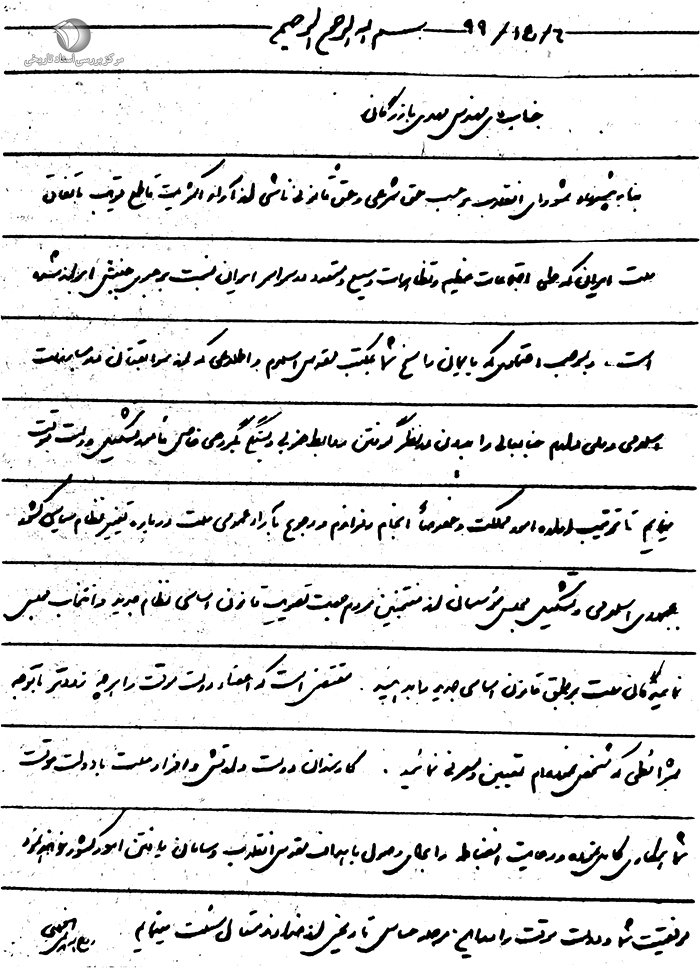 مرکز بررسی اسناد تاریخی
بسم الله الرحمن الرحیم ۶/ع۱/۹۹
جناب آقای مهندس مهدی بازرگان
بنا به پیشنهاد شورای انقلاب بر حسب حق شرعی و حق قانونی ناشی از آراء اکثریت قاطع قریب باتفاق
ملت ایران که طی اجتماعات عظیم و تظاهرات وسیع و متعدد در سراسر ایران نسبت برهبری جنبش ابراز شده
است. و بموجب اعتمادی که بایمان راسخ شما بمکتب مقدس اسلام و اطلاعی که از سوابقتان در مبارزات
اسلامی و ملی دارم جنابعالی را بدون در نظر گرفتن روابط حزبی و بستگی بگروهی خاص مأمور تشکیل دولت موقت
مینمایم تا ترتیب اداره امور مملکت و خصوصاً انجام رفراندم و رجوع بآراء عمومی ملت درباره تغییر نظام سیاسی کشور
بجمهوری اسلامی و تشکیل مجلس مؤسسان از منتخبین مردم جهت تصویب قانون اساسی نظام جدید و انتخاب مجلس
نمایندگان ملت بر طبق قانون اساسی جدید را بدهید. مقتضی است که اعضاء دولت موقت را هر چه زودتر با توجه
بشرائطی که مشخص نموده‌ام تعیین و معرفی نمائید. کارمندان دولت و ارتش و افراد ملت با دولت موقت
شما همکاری کامل نموده و رعایت انضباط را برای وصول باهداف مقدس انقلاب و سامان یافتن امور کشور خواهند نمود
موفقیت شما و دولت موقت را در این مرحله حساس تاریخی از خداوند متعال مسئلت مینمایم
روح الله الموسوی الخمینی